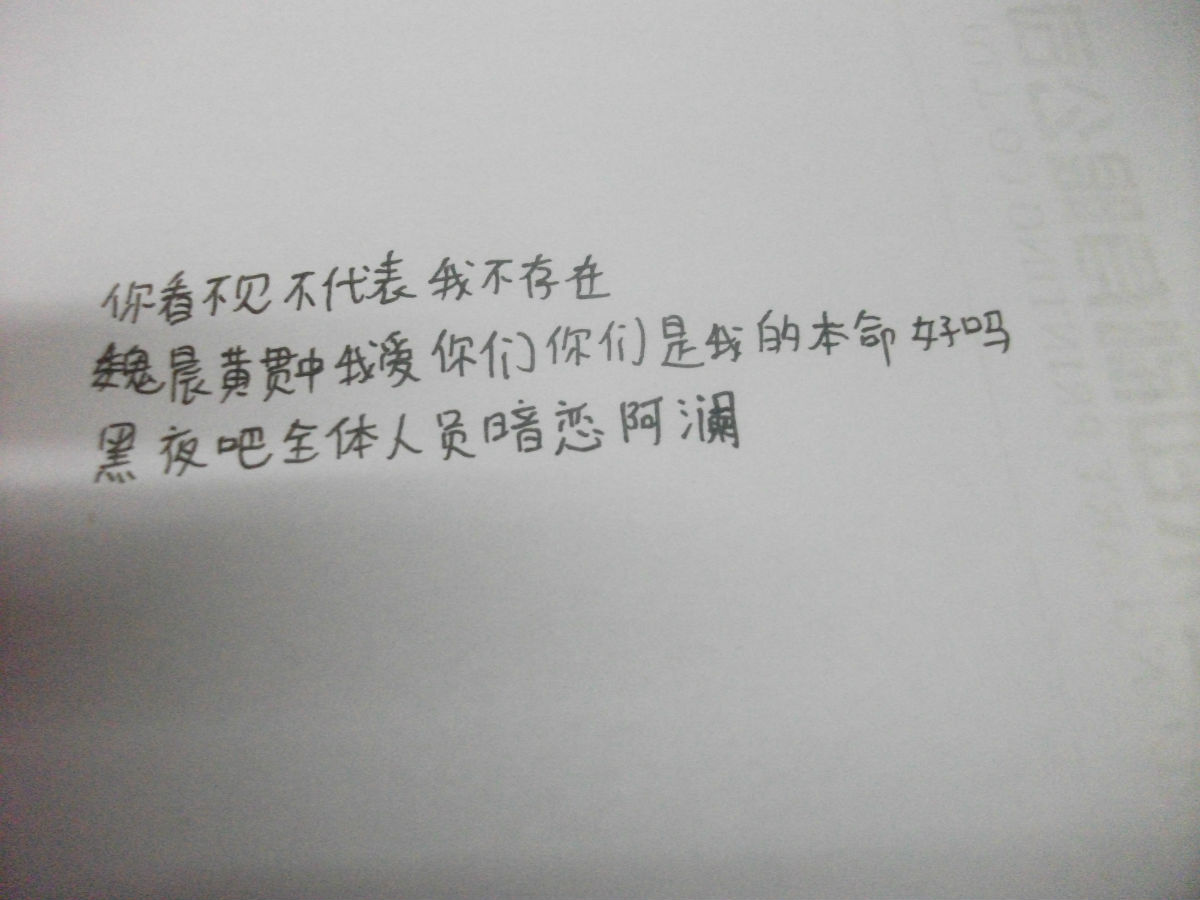 你看不见不代表我不存在
魏晨黄贯中我爱你们你们是我的本命好吗
黑夜吧全体人员暗恋阿澜